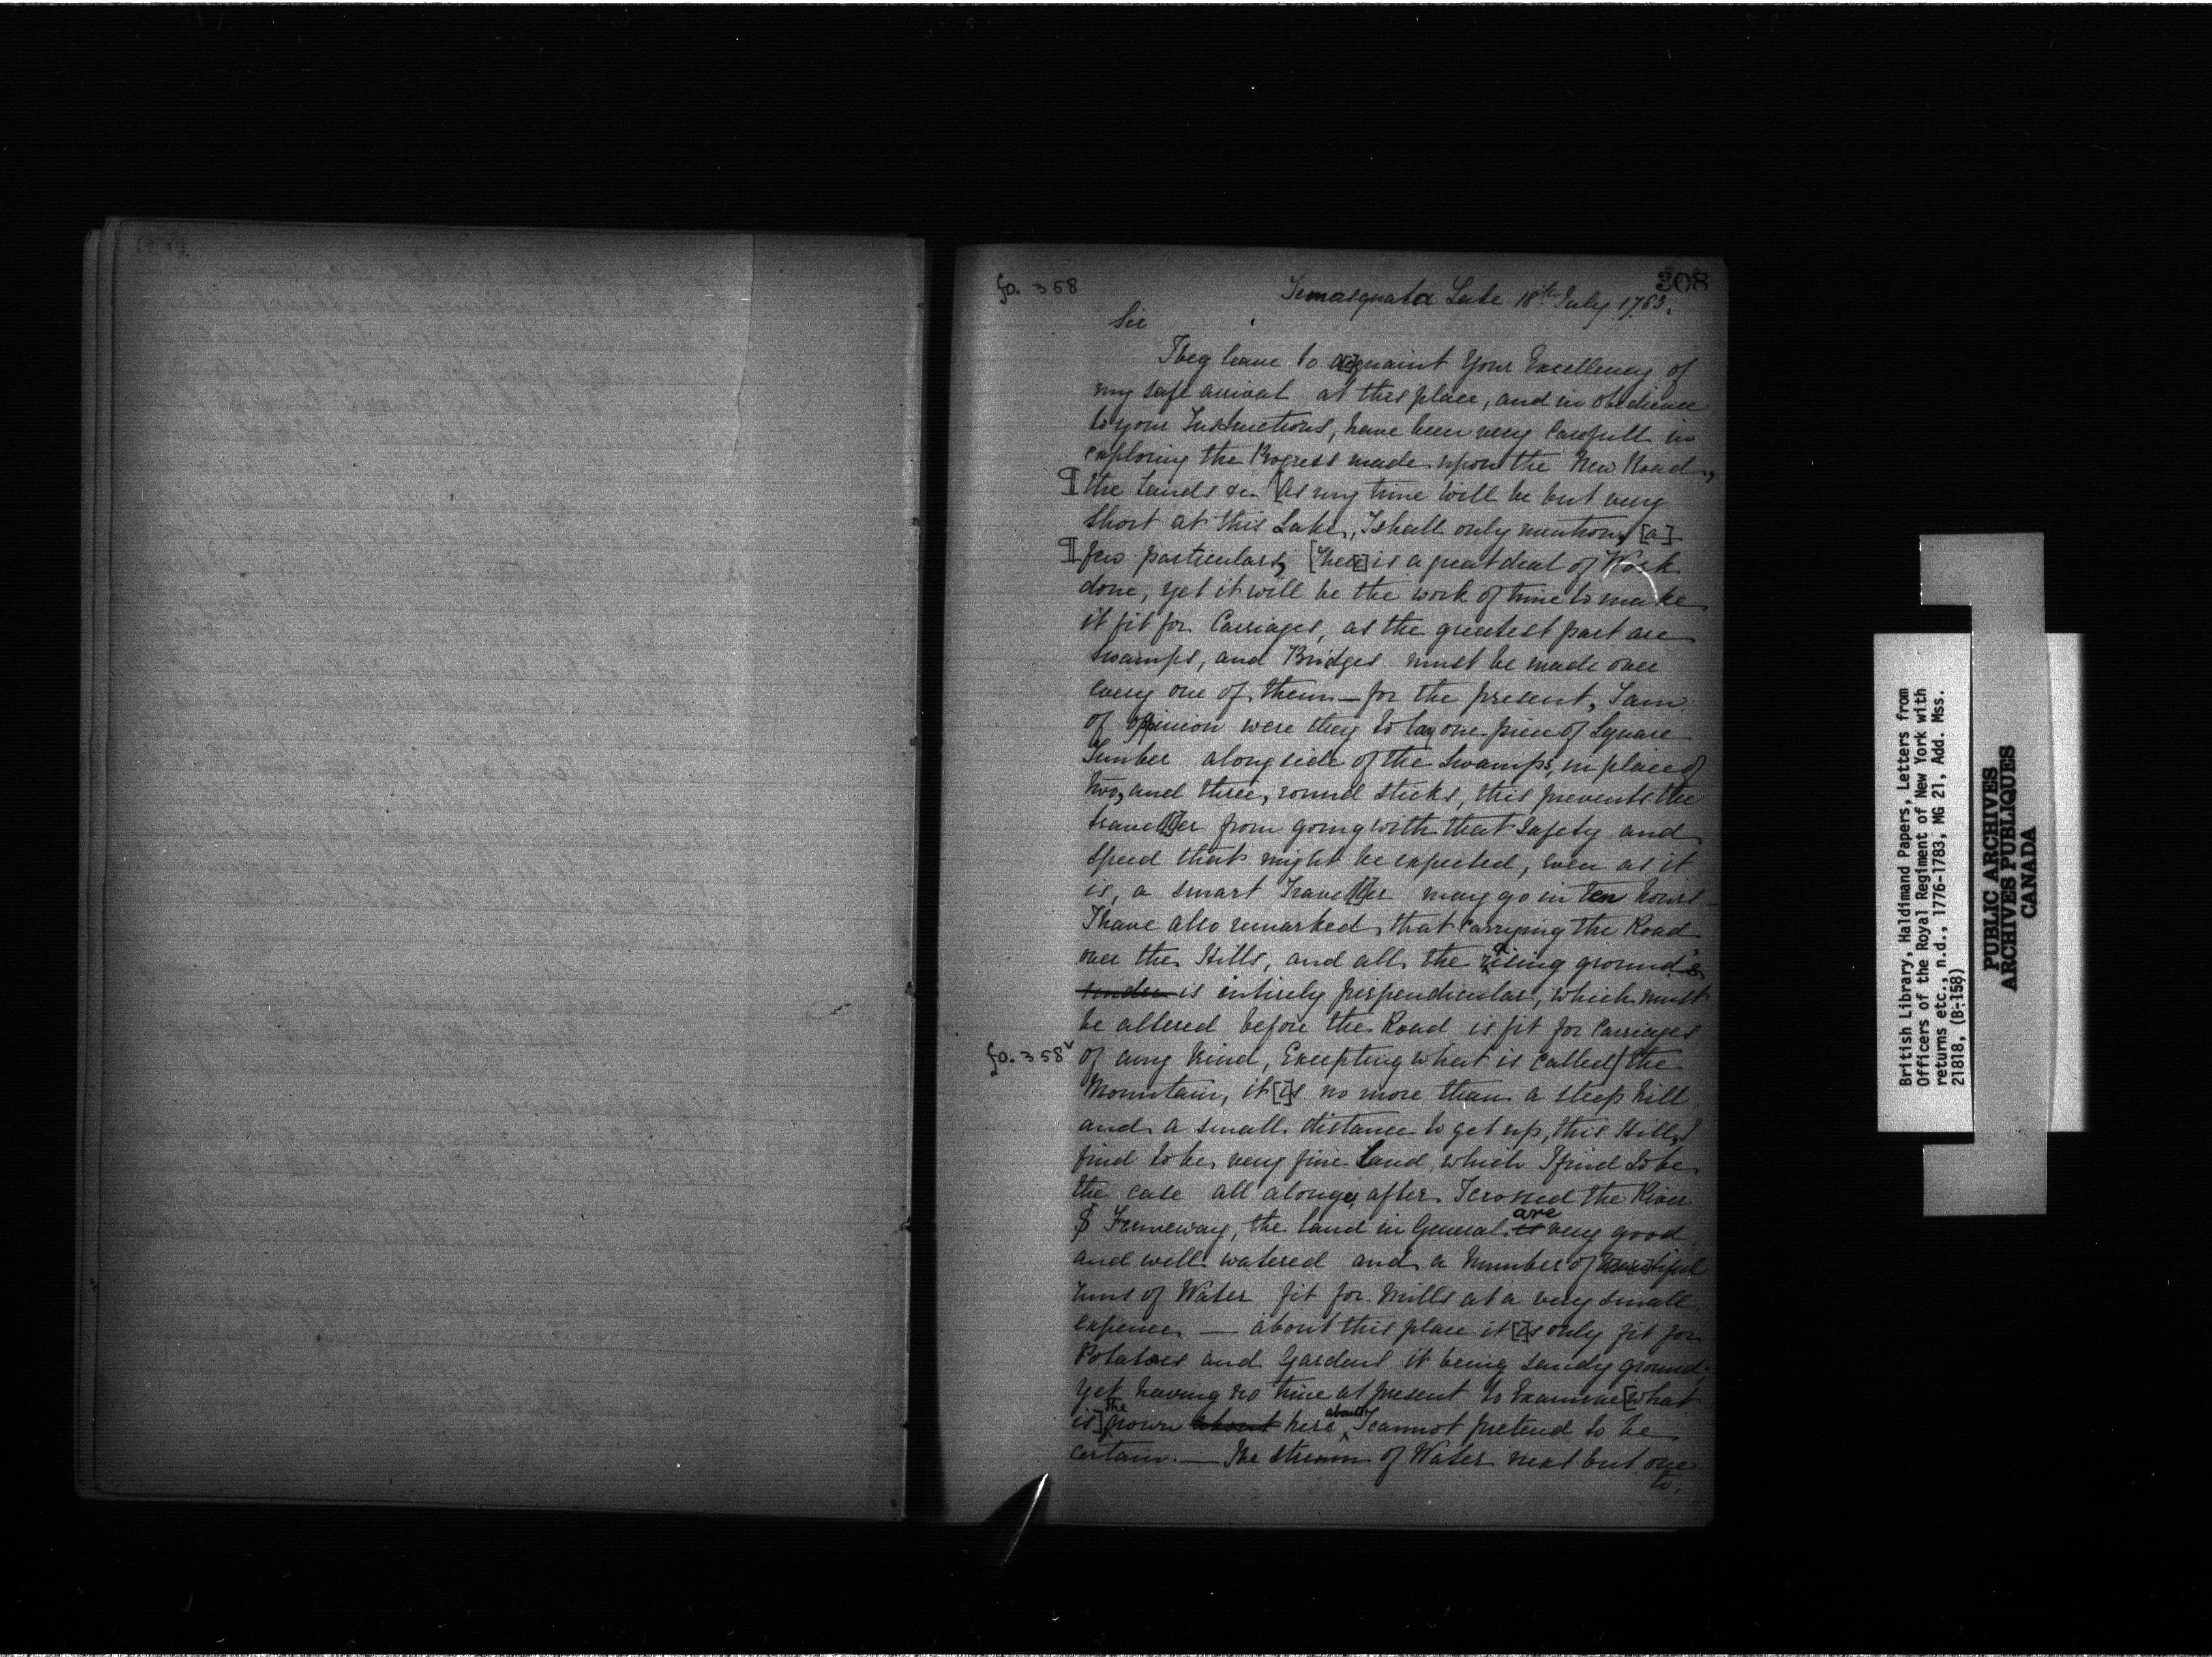 fo. 358
308
Temasquata Lake 18th July 1783.
Sir
I beg leave to acquaint Your Excellency of
my safe arrival at this place, and in obedience
to your Instructions, have been very Carefull in
exploring the Progress made upon the New Road,
¶ the Lands &c. [As my time will be but very
short at this Lake, I shall only mention, [a]
¶ few particulars, [there] is a great deal of Work
done, yet it will be the work of time to make
it fit for Carriages, as the greatest part are
swamps, and Bridges must be made over
every one of them — for the present, I am
of opinion were they to lay one piece of Square
Timber along side of the Swamps, in place of
two, and three, round sticks, this prevents the
traveller from going with that safety and
speed that might be expected, even as it
is, a smart Traveller may go in ten hours —
I have also remarked that Carrying the Road
over the Hills, and all the rising grounds
under is intirely perpendicular, which must
be altered before the Road is fit for Carriages
fo. 358v of any kind, Excepting what is called the
Mountain, it [i]s no more than a steep hill
and a small distance to get up, this Hill, I
find to be, very fine Land, which I find to be
the case all along, after I crossed the River
the land in General is are very good
and well watered and a Number of beautiful
runs of Water fit for Mills at a very small
expence — about this place it [i]s only fit for
Potatoes and Gardens it being sandy ground,
yet having no time at present to Examine [what
is] the about here about, I cannot pretend to be
certain. — The stream of Water next but one
to.
British Library, Haldimand Papers, Letters from
Officers of the Royal Regiment of New York with
returns etc., n.d., 1776-1783, MG 21, Add. Mss.
21818, (B-158)
PUBLIC ARCHIVES
ARCHIVES PUBLIQUES
CANADA